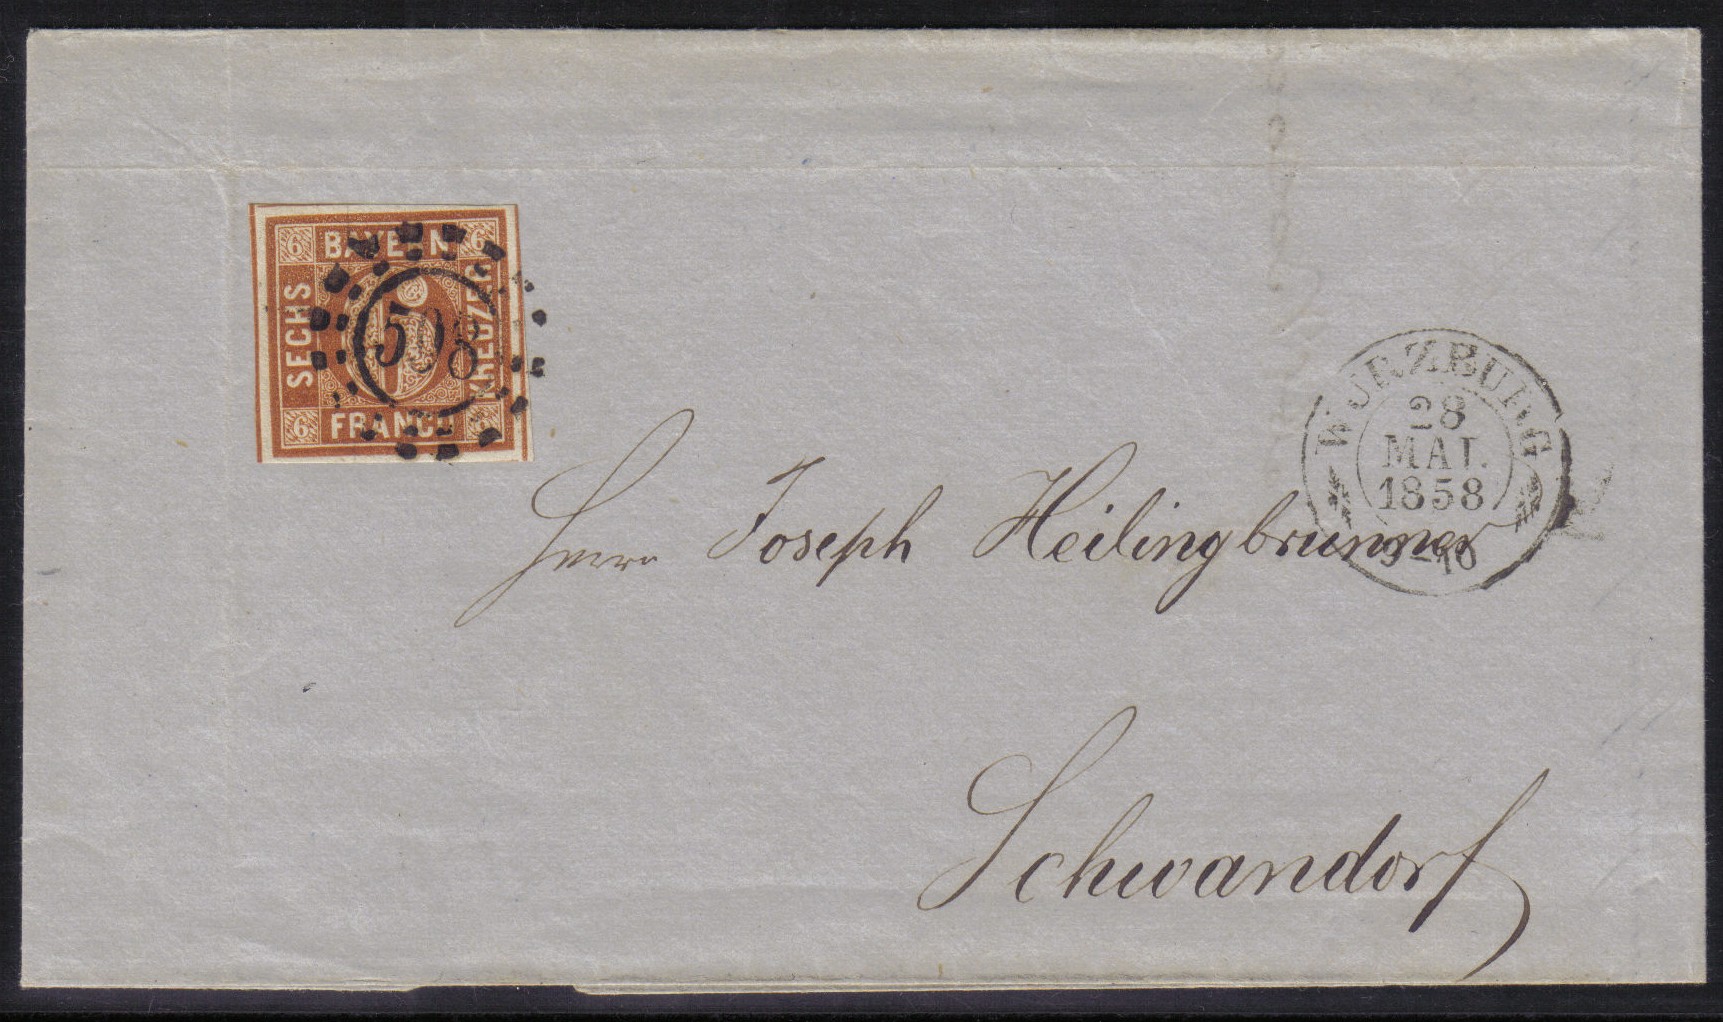 6 BAYERN 6
SECHS
KREUZER
6 FRANCO 6
598
WÜRZBURG
28
MAI.
1858
9-10
Herrn Joseph Heilingbrunner
Schwandorf